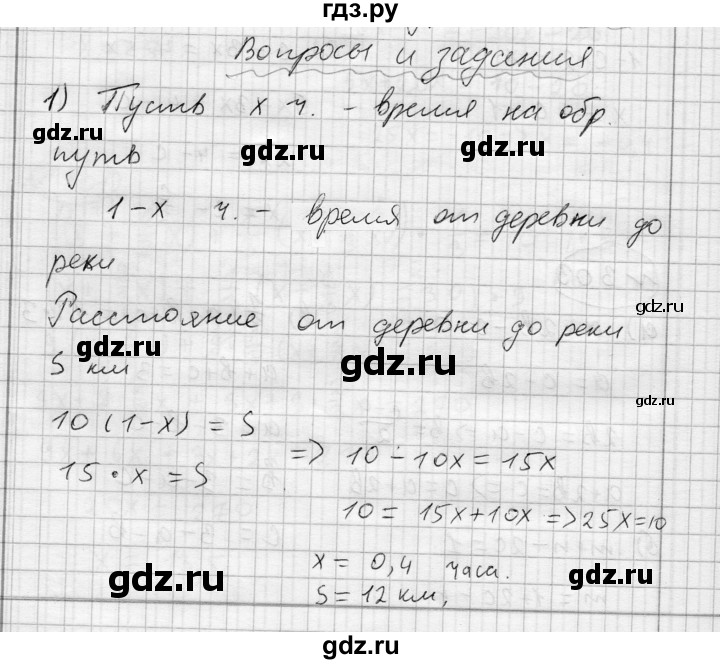 гдз.ру
Вопросы и задания
1) Пусть x ч. - время на обр.
gdz.ru gdz.ru gdz.ru
путь
1-x ч. - время от деревни до
реки
Расстояние от деревни до реки
gdz.ru gdz.ru gdz.ru
S км
10(1-x) = S
15·x = S
=> 10-10x=15x
10= 15x+10x=>25x=10
x= 0,4 часа.
gdz.ru gdz.ru
S=12 км,
gdz.ru